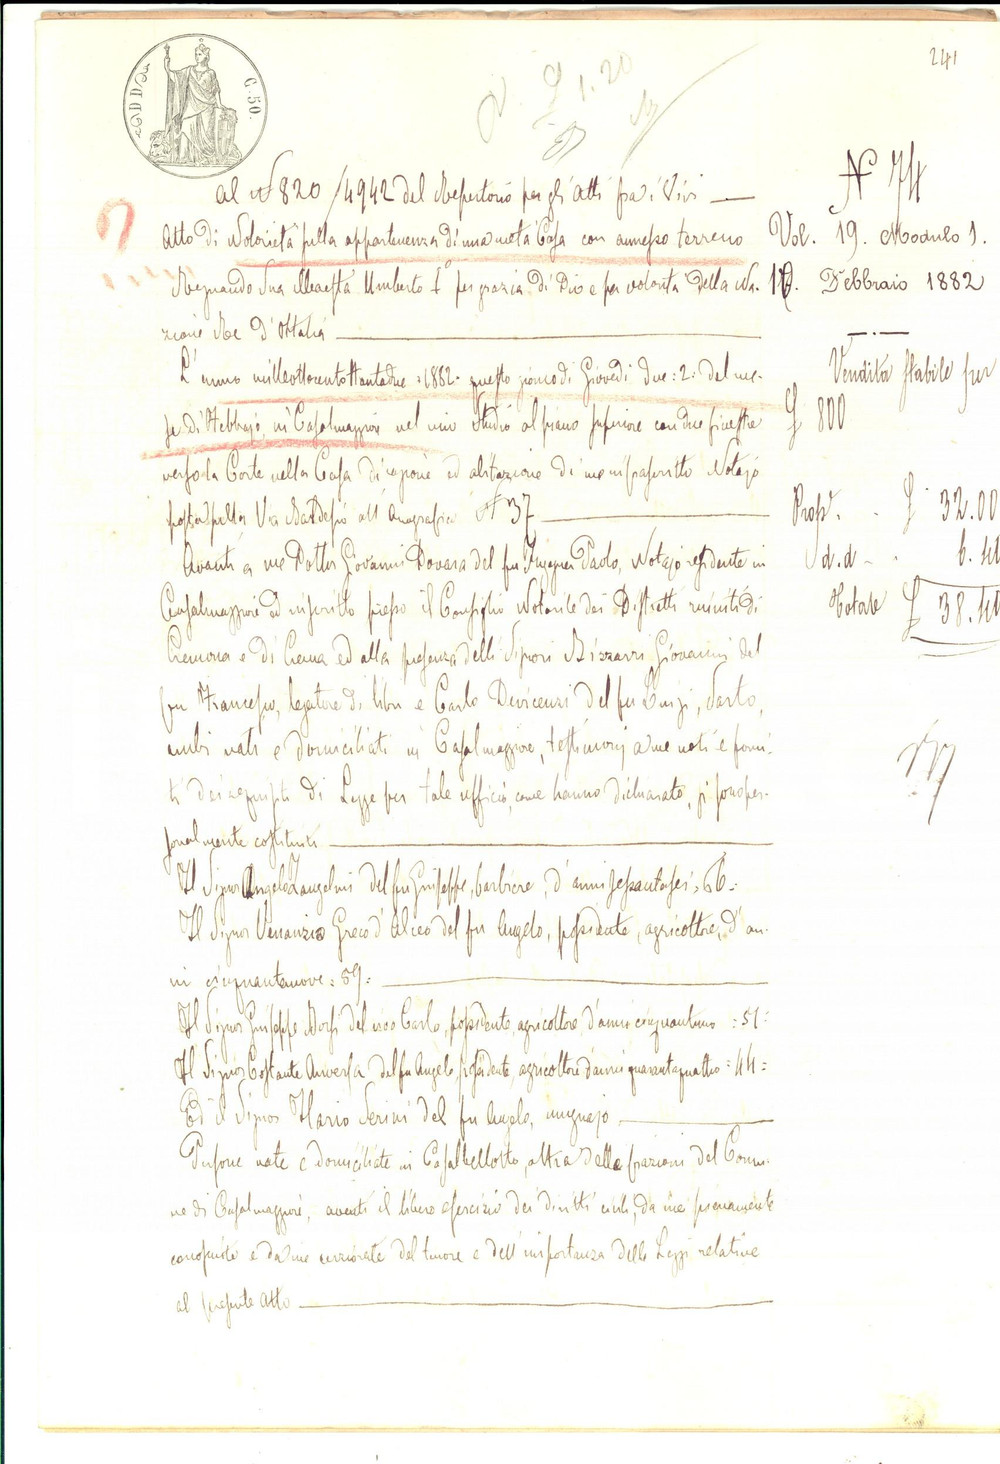 241
C. 50.
£ 1.20
N 74
Al N 820 / 4942 del Repertorio per gli Atti fra i Vivi
Atto di Notorietà sulla appartenenza di una metà Casa con annesso terreno
Vol. 19. Modulo 1.
Regnando Sua Maestà Umberto I° per grazia di Dio e per volontà della Na-
Febbraio 1882
zione Re d'Italia
L'anno milleottocentottantadue :1882: questo giorno di Giovedì due :2: del me-
Vendita stabile per
£ 800
se di Febbrajo, in Casalmaggiore nel mio Studio al piano superiore con due finestre
verso la Corte nella Casa di ragione ed abitazione di me infrascritto Notajo
posta sulla Via Baldesio all'Anagrafico N 37
Prop. . £ 32.00
Avanti a me Dottor Giovanni Dovara del fu Ingegner Paolo, Notajo residente in
d.d - .
Casalmaggiore ed inscritto presso il Consiglio Notarile dei Distretti riuniti di
Totale £ 38.
Cremona e di Crema ed alla presenza delli Signori Bizzarri Giovanni del
fu Francesco, legatore di libri e Carlo Devicenzi del fu Luigi, Sarto,
ambi nati e domiciliati in Casalmaggiore, testimonj a me noti e forni-
ti dei requisiti di Legge per tale ufficio, come hanno dichiarato, si sono per-
sonalmente costituiti
Il Signor Angelo Zangelmi del fu Giuseppe, barbiere, d'anni sessantasei :66:
Il Signor Venanzio Greco d'Alceo del fu Angelo, possidente, agricoltore, d'an-
ni cinquantanove :59:
Il Signor Giuseppe Borsi del vivo Carlo, possidente, agricoltore, d'anni cinquantuno :51:
Il Signor Costante Anversa del fu Angelo, possidente, agricoltore d'anni quarantaquattro :44:
Ed il Signor Ilario Serini del fu Angelo, mugnajo
Persone nate e domiciliate in Casalbellotto, altra delle frazioni del Comu-
ne di Casalmaggiore, aventi il libero esercizio dei diritti civili, da me pienamente
conosciute e da me avvertite del tenore e dell'importanza delle Leggi relative
al presente Atto